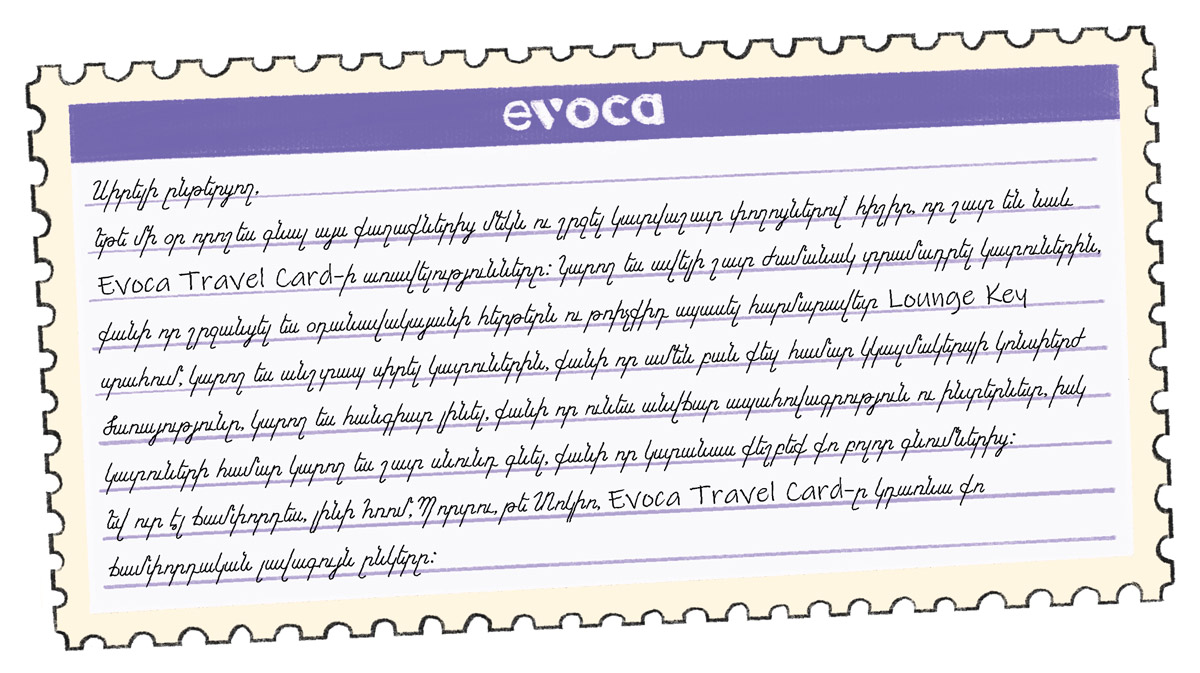 evoca
Սիրելի ընթերցող,
եթե մի օր որոշես գնալ այս քաղաքներից մեկն ու շրջել կատվաշատ փողոցներով՝ հիշիր, որ շատ են նաև
Evoca Travel Card-ի առավելությունները: Կարող ես ավելի շատ ժամանակ տրամադրել կատուներին,
քանի որ շրջանցել ես օդանավակայանի հերթերն ու թռիչքիդ սպասել հարմարավետ Lounge Key
սրահում, կարող ես անվրտաս սիրել կատուներին, քանի որ ամեն բան քեզ համար կկազմակերպի կոնսիերժ
ծառայությունը, կարող ես հանգիստ լինել, քանի որ ունես անվճար ապահովագրություն ու ինտերնետ, իսկ
կատուների համար կարող ես շատ անուշեղեն գնել, քանի որ կստանաս քեշբեք քո բոլոր գնումներից:
Եվ ուր էլ ճամփորդես, լինի հռոմ, Պորտու, թե Տոկիո, Evoca Travel Card-ը կդառնա քո
ճամփորդական լավագույն ընկերը: